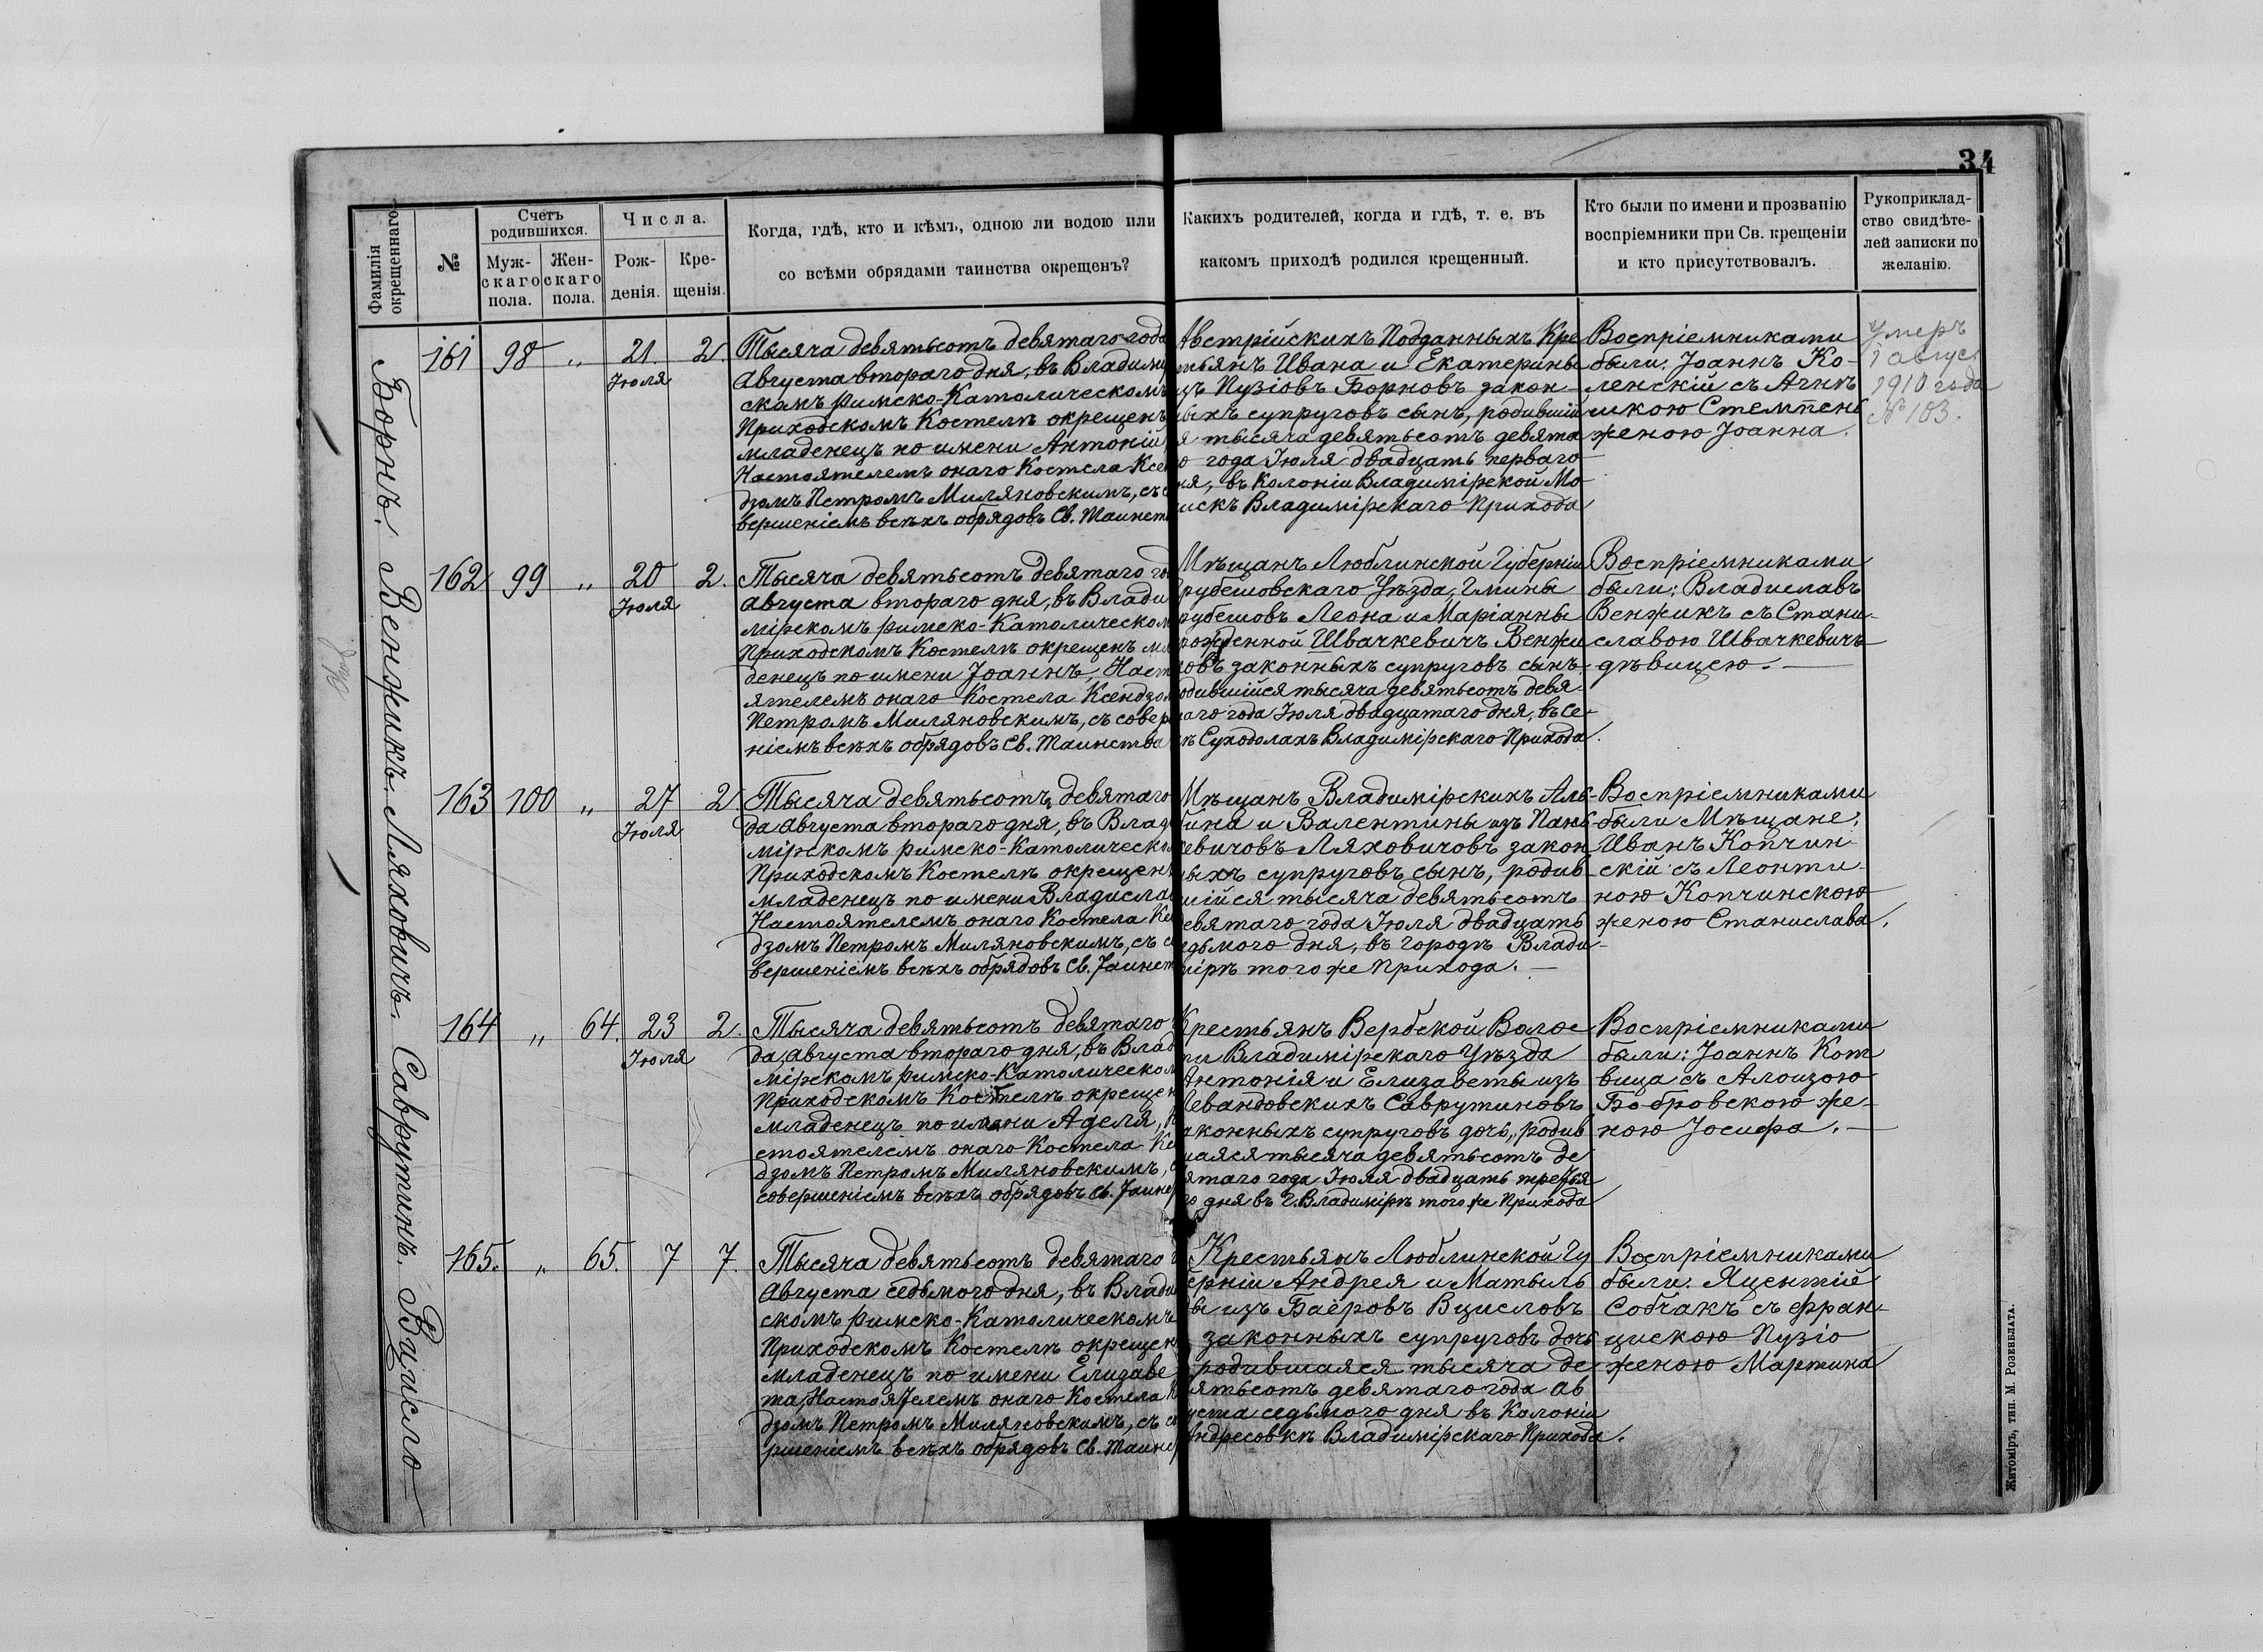 34
Фамилія окрещеннаго.
№
Счетъ родившихся.
Мужскаго пола.
Женскаго пола.
Числа.
Рожденія.
Крещенія.
Когда, гдѣ, кто и кѣмъ, одною ли водою или
со всѣми обрядами таинства окрещенъ?
Какихъ родителей, когда и гдѣ, т. е. въ
какомъ приходѣ родился крещенный.
Кто были по имени и прозванію
воспріемники при Св. крещеніи
и кто присутствовалъ.
Рукоприклад-
ство свидѣте-
лей записки по
желанію.
Борнъ. Венжикъ. Ляховичъ. Саврутинъ. Вцисло
161 98 „ 21 Іюля 2.
Тысяча девятьсотъ девятаго года
Августа втораго дня, въ Владими
скомъ римско-Католическомъ
Приходскомъ Костелѣ окрещенъ
младенецъ по имени Антоній,
Настоятелемъ онаго Костела Ксен
дзомъ Петромъ Миляновскимъ, съ с
вершеніемъ всѣхъ обрядовъ Св. Таинст
Австрійскихъ Подданныхъ Кре
тьянъ Ивана и Екатерины
изъ Пузіовъ Борновъ закон-
ныхъ супруговъ сынъ, родившій
я тысяча девятьсотъ девята
о года Іюля двадцать перваго
ня, въ Колоніи Владимірской Мо
искъ Владимірскаго Прихода
Воспріемниками
были: Іоаннъ Ко-
ленскій съ Агнѣ
шкою Стемпень
женою Іоанна.
Умеръ
1 август
1910 года
№ 103.
162 99 „ 20 Іюля 2.
Тысяча девятьсотъ девятаго го
Августа втораго дня, въ Влади
мірскомъ римско-Католическом
Приходскомъ Костелѣ окрещенъ мл
денецъ по имени Іоаннъ, Наст
ятелемъ онаго Костела Ксендзом
Петромъ Миляновскимъ, съ совер
ніемъ всѣхъ обрядовъ Св. Таинства
Мѣщанъ Люблинской Губерніи
рубешовскаго Уѣзда, Гмины
рубешовъ Леона и Маріанны
рожденной Швачкевичъ Венжи
ковъ законныхъ супруговъ сынъ
одившійся тысяча девятьсотъ девя
таго года Іюля двадцатаго дня, въ Се-
лѣ Суходолахъ Владимірскаго Прихода.
Воспріемниками
были: Владиславъ
Венжикъ съ Стани
славою Швачкевичъ
дѣвицею.
163 100 „ 27 Іюля 2.
Тысяча девятьсотъ девятаго
да Августа втораго дня, въ Влад
мірскомъ римско-Католическо
Приходскомъ Костелѣ окрещен
младенецъ по имени Владисла
Настоятелемъ онаго Костела Кс
дзомъ Петромъ Миляновскимъ, съ с
вершеніемъ всѣхъ обрядовъ Св. Таинст
Мѣщанъ Владимірскихъ Аль-
бина и Валентины изъ Пань
кевичовъ Ляховичовъ закон
ныхъ супруговъ сынъ, родив
шійся тысяча девятьсотъ
евятаго года Іюля двадцать
едьмого дня, въ городѣ Влади-
мірѣ того же Прихода.
Воспріемниками
были Мѣщане:
Иванъ Копчин-
скій съ Леонти-
ною Копчинскою
женою Станислава.
164 „ 64. 23 Іюля 2.
Тысяча девятьсотъ девятаго
да, Августа втораго дня, въ Влад
мірскомъ римско-Католическо
Приходскомъ Костелѣ окрещен
младенецъ по имени Аделя, Н
стоятелемъ онаго Костела Кс
дзомъ Петромъ Миляновскимъ, с
совершеніемъ всѣхъ обрядовъ Св. Таинс
Крестьянъ Вербской Волос
ти Владимірскаго Уѣзда
Антонія и Елизаветы изъ
Левандовскихъ Саврутиновъ
аконныхъ супруговъ дочь, родив
шаяся тысяча девятьсотъ де
ятаго года Іюля двадцать третья
го дня въ Г. Владимірѣ того же Прихода
Воспріемниками
были: Іоаннъ Кот
вица съ Алоизою
Бобровскою же-
ною Іосифа.
165. „ 65. 7 7.
Тысяча девятьсотъ девятаго г
Августа седьмого дня, въ Влади
скомъ римско-Католическомъ
Приходскомъ Костелѣ окрещен
младенецъ по имени Елизаве
та, Настоятелемъ онаго Костела К
дзомъ Петромъ Миляновскимъ, съ со
ршеніемъ всѣхъ обрядовъ Св. Таинс
Крестьянъ Люблинской Гу
берніи Андрея и Матиль
ды изъ Баёровъ Вцисловъ
законныхъ супруговъ дочь
родившаяся тысяча де
ятьсотъ девятаго года Ав
уста седьмого дня въ Колоніи
Андресовкѣ Владимірскаго Прихода.
Воспріемниками
были: Яцентій
Собчакъ съ Фран-
цискою Пузіо
женою Мартина
Житоміръ, тип. М. Розенблата.